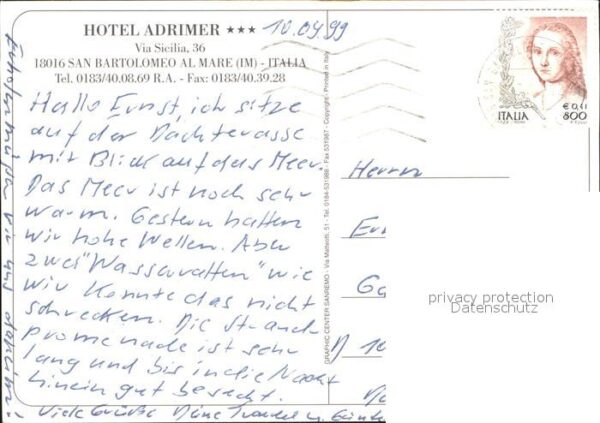 HOTEL ADRIMER ★★★
10.09.99
Via Sicilia, 36
18016 SAN BARTOLOMEO AL MARE (IM) - ITALIA
Tel. 0183/40.08.69 R.A. - Fax: 0183/40.39.28
Hallo Ernst, ich sitze
auf der Dachterasse
mit Blick auf das Meer.
Das Meer ist noch sehr
warm. Gestern hatten
wir hohe Wellen. Aber
zwei "Wasserratten" wie
wir konnte das nicht
schrecken. Die Strand
promenade ist sehr
lang und bis in die Nacht
hinein gut besucht.
Viele Grüße Deine
GRAPHIC CENTER SANREMO - Via Matteotti, 51 - Tel. 0184-531988 - Fax 531987 - Copyright - Printed in Italy
€ 0,41
ITALIA 800
Herrn
privacy protection
Datenschutz